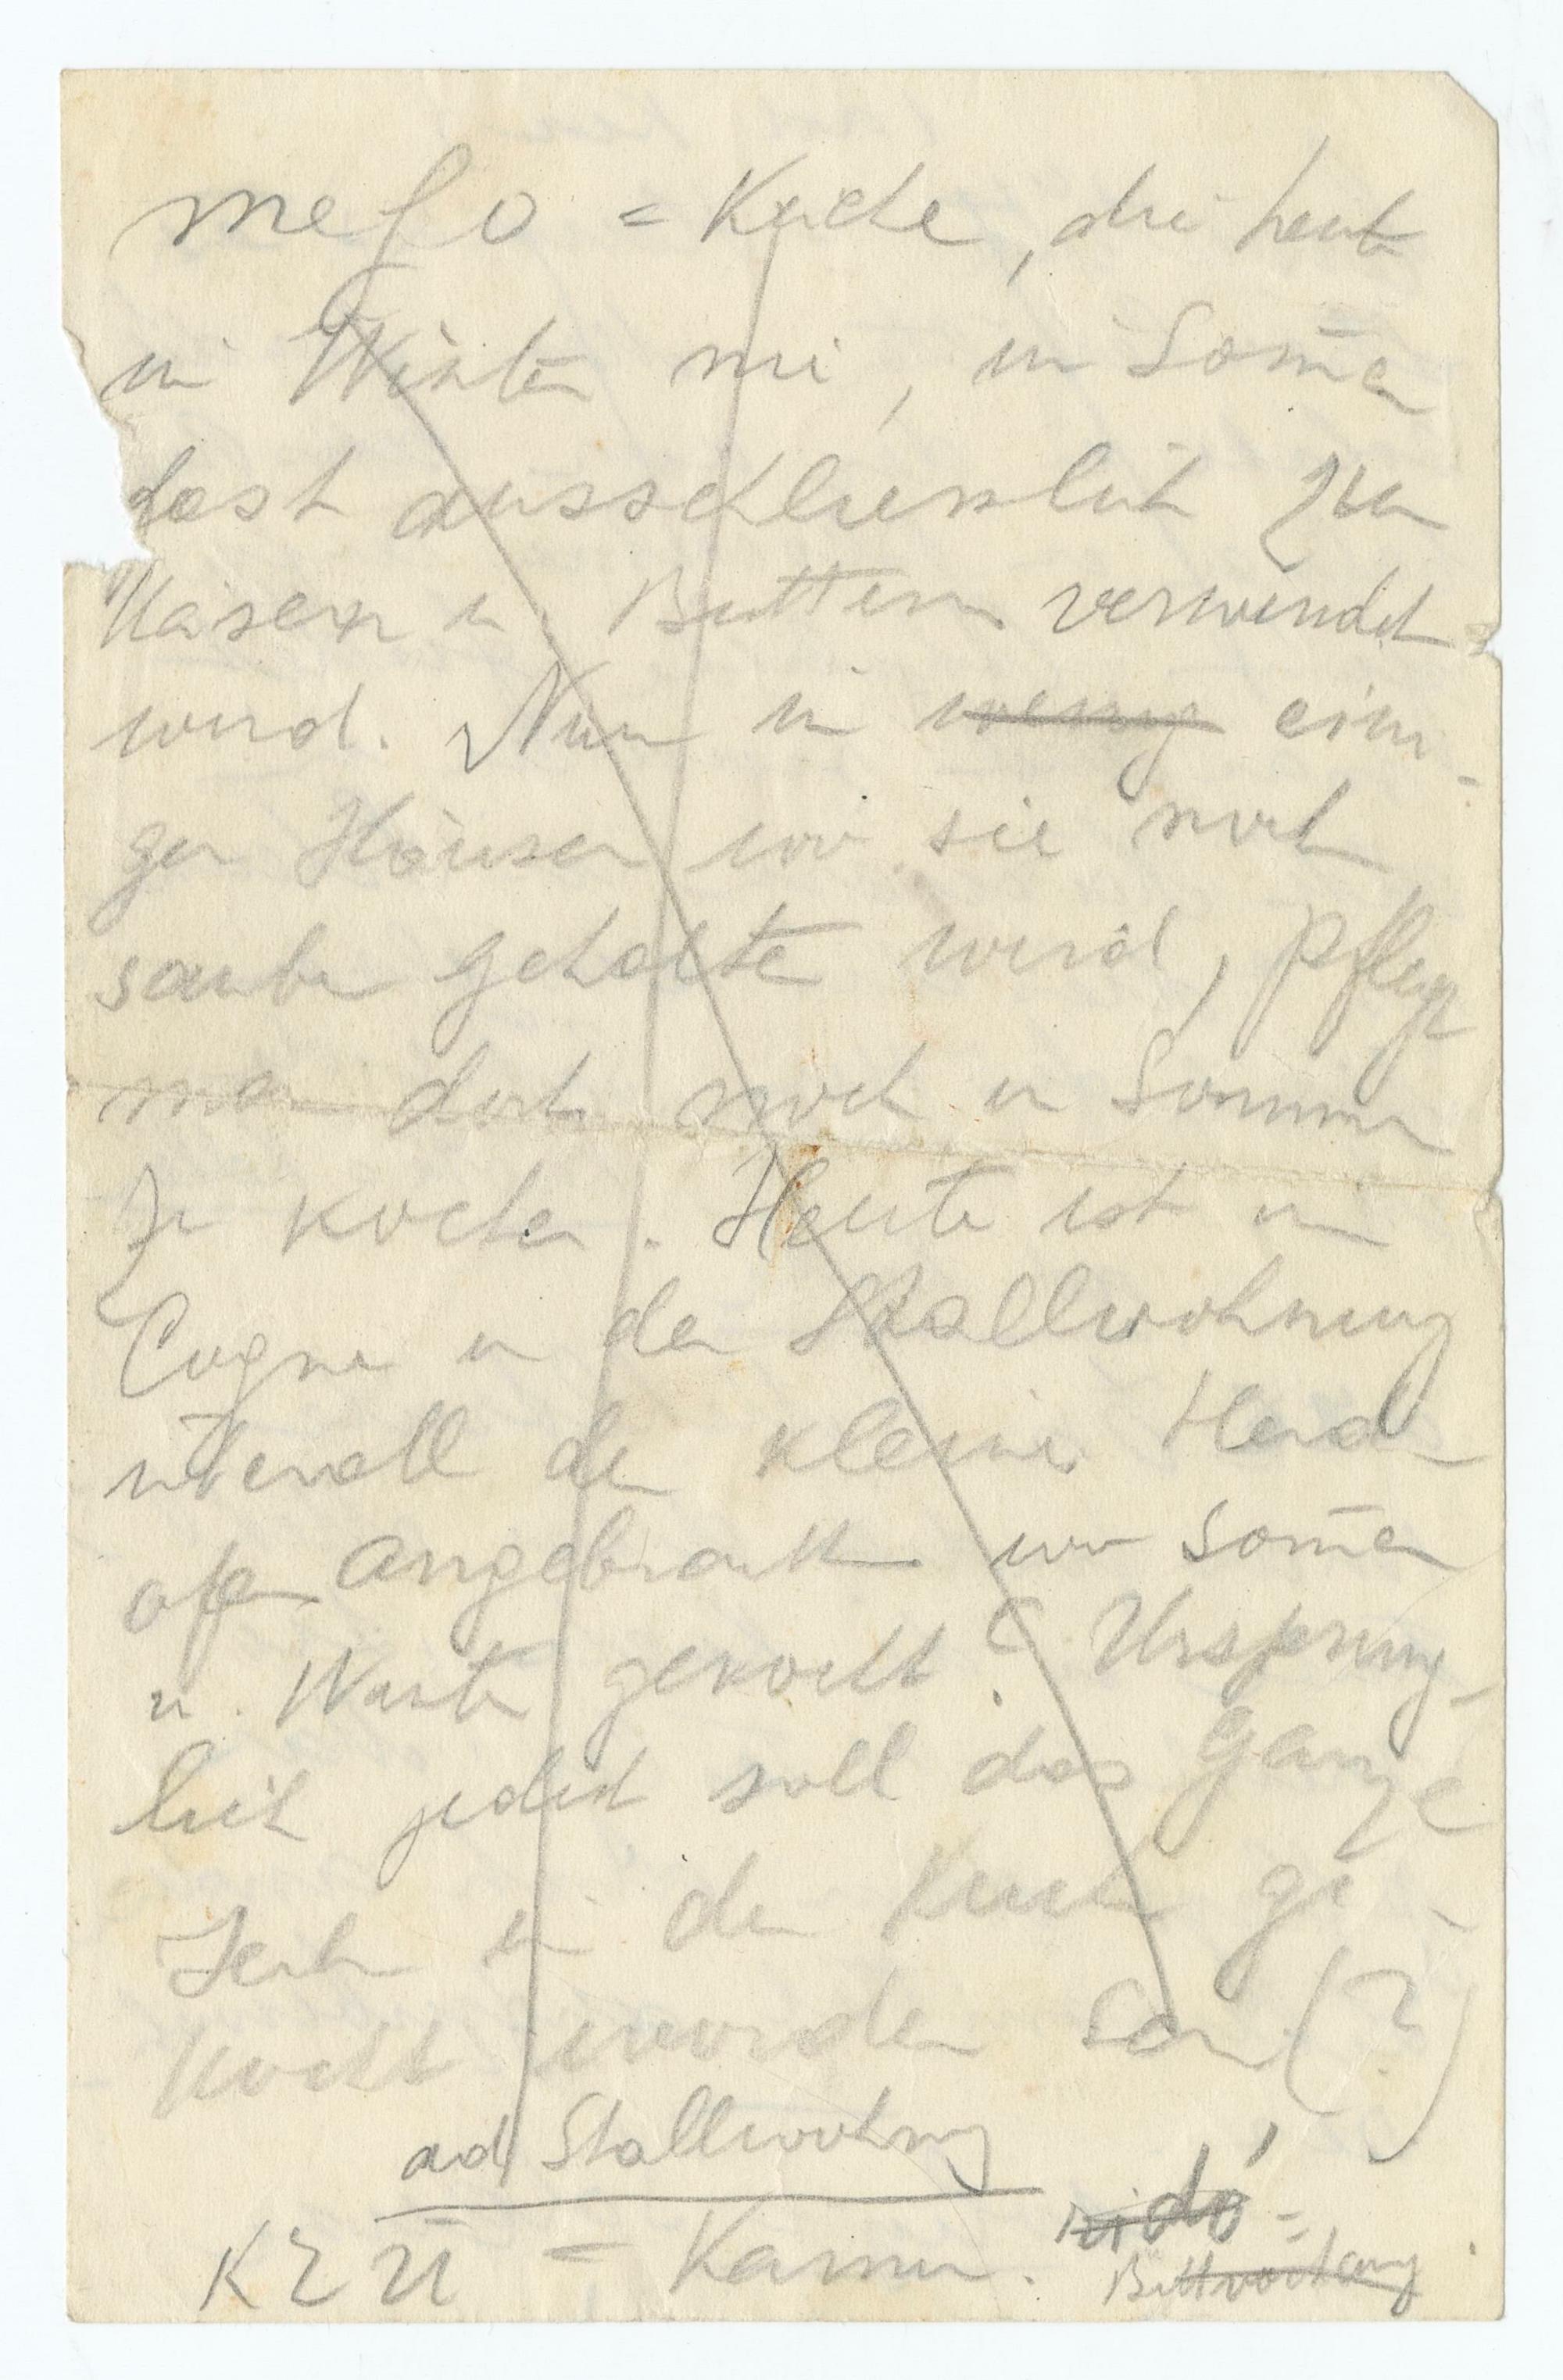 meʃo = Küche, die heute
im Winter nie, im Som̄er
fast ausschliesslich zum
Käsen u. Buttern verwendet
wird. Nur in wenig eini-
gen Häuser wo sie noch
sauber gehalten wird, pflegt
man doch noch im Sommer
zu kochen. Heute ist in
Cogne in der Stallwohnung
überall der kleine Herd
ofen angebracht wo Som̄er
u. Winter gekocht. Ursprüng-
lich jedoch soll das ganze
Jahr in der Küche ge-
kocht worden sein (?)
ad Stallwohnung
ridó =
= Kamin.
Bettvorhang